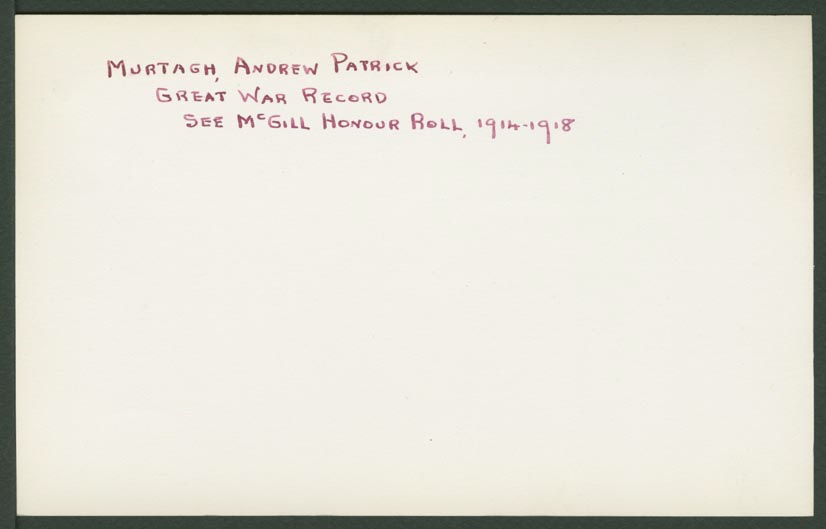 MURTAGH, ANDREW PATRICK
GREAT WAR RECORD
SEE MCGILL HONOUR ROLL, 1914-1918